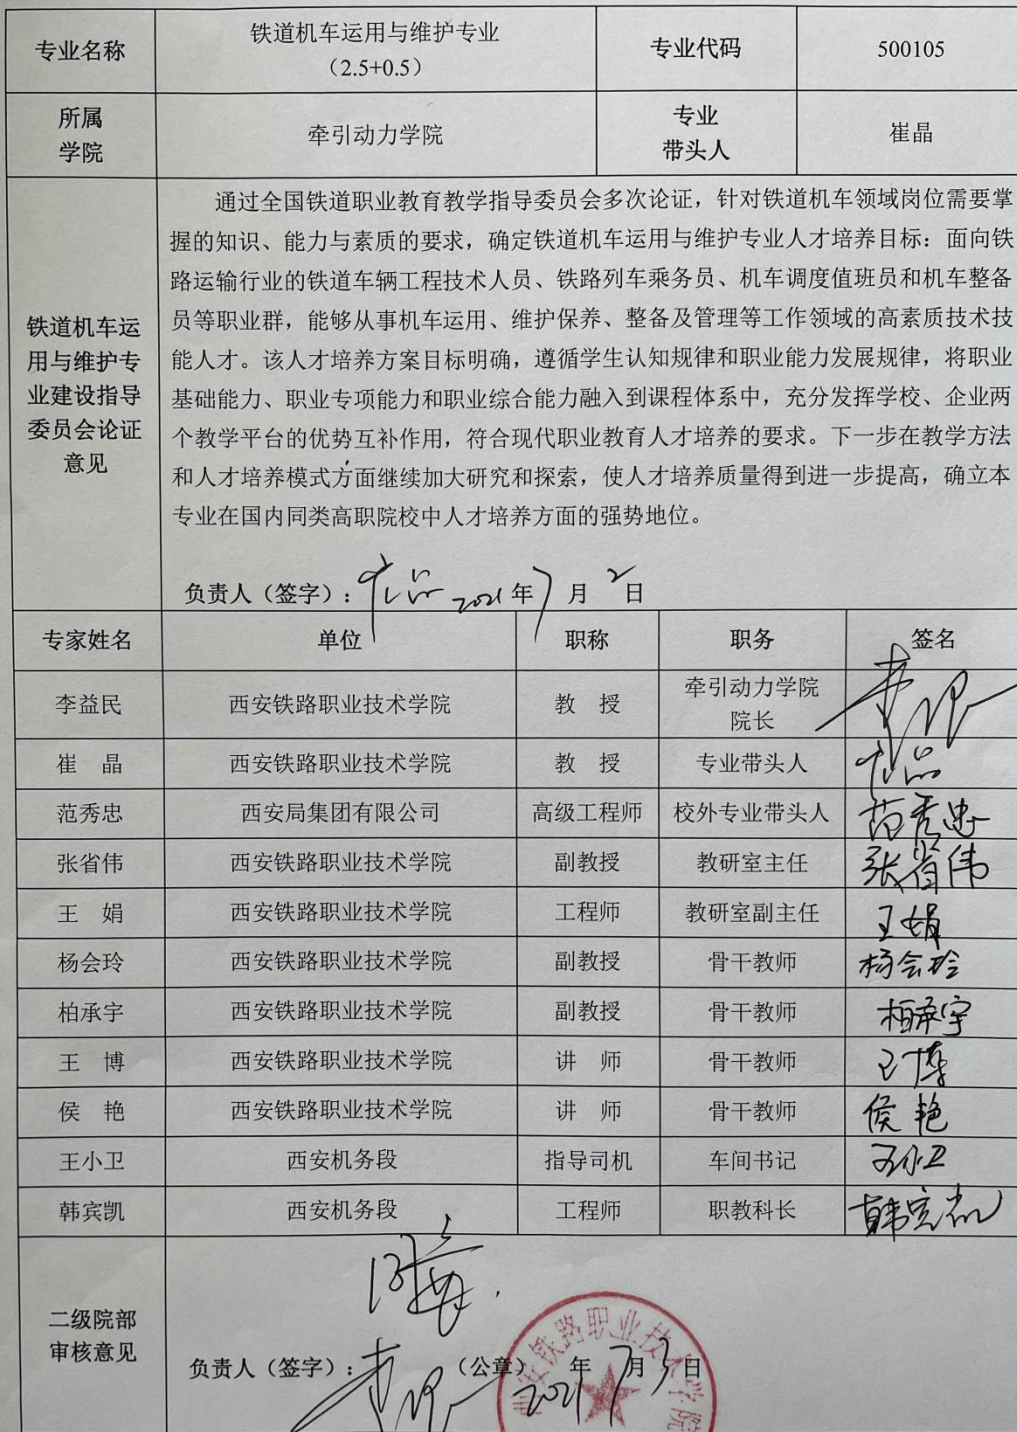 专业名称
铁道机车运用与维护专业
（2.5+0.5）
专业代码
500105
所属
学院
牵引动力学院
专业
带头人
崔晶
铁道机车运
用与维护专
业建设指导
委员会论证
意见
通过全国铁道职业教育教学指导委员会多次论证，针对铁道机车领域岗位需要掌
握的知识、能力与素质的要求，确定铁道机车运用与维护专业人才培养目标：面向铁
路运输行业的铁道车辆工程技术人员、铁路列车乘务员、机车调度值班员和机车整备
员等职业群，能够从事机车运用、维护保养、整备及管理等工作领域的高素质技术技
能人才。该人才培养方案目标明确，遵循学生认知规律和职业能力发展规律，将职业
基础能力、职业专项能力和职业综合能力融入到课程体系中，充分发挥学校、企业两
个教学平台的优势互补作用，符合现代职业教育人才培养的要求。下一步在教学方法
和人才培养模式方面继续加大研究和探索，使人才培养质量得到进一步提高，确立本
专业在国内同类高职院校中人才培养方面的强势地位。
负责人（签字）：崔晶 2021年7月2日
专家姓名 单位 职称 职务 签名
李益民 西安铁路职业技术学院 教 授 牵引动力学院
院长
崔 晶 西安铁路职业技术学院 教 授 专业带头人 崔晶
范秀忠 西安局集团有限公司 高级工程师 校外专业带头人 范秀忠
张省伟 西安铁路职业技术学院 副教授 教研室主任 张省伟
王 娟 西安铁路职业技术学院 工程师 教研室副主任 王娟
杨会玲 西安铁路职业技术学院 副教授 骨干教师 杨会玲
柏承宇 西安铁路职业技术学院 副教授 骨干教师 柏承宇
王 博 西安铁路职业技术学院 讲 师 骨干教师 王博
侯 艳 西安铁路职业技术学院 讲 师 骨干教师 侯艳
王小卫 西安机务段 指导司机 车间书记 王小卫
韩宾凯 西安机务段 工程师 职教科长 韩宾凯
二级院部
审核意见
同意.
负责人（签字）： （公章） 2021年7月3日
西安铁路职业技术学院